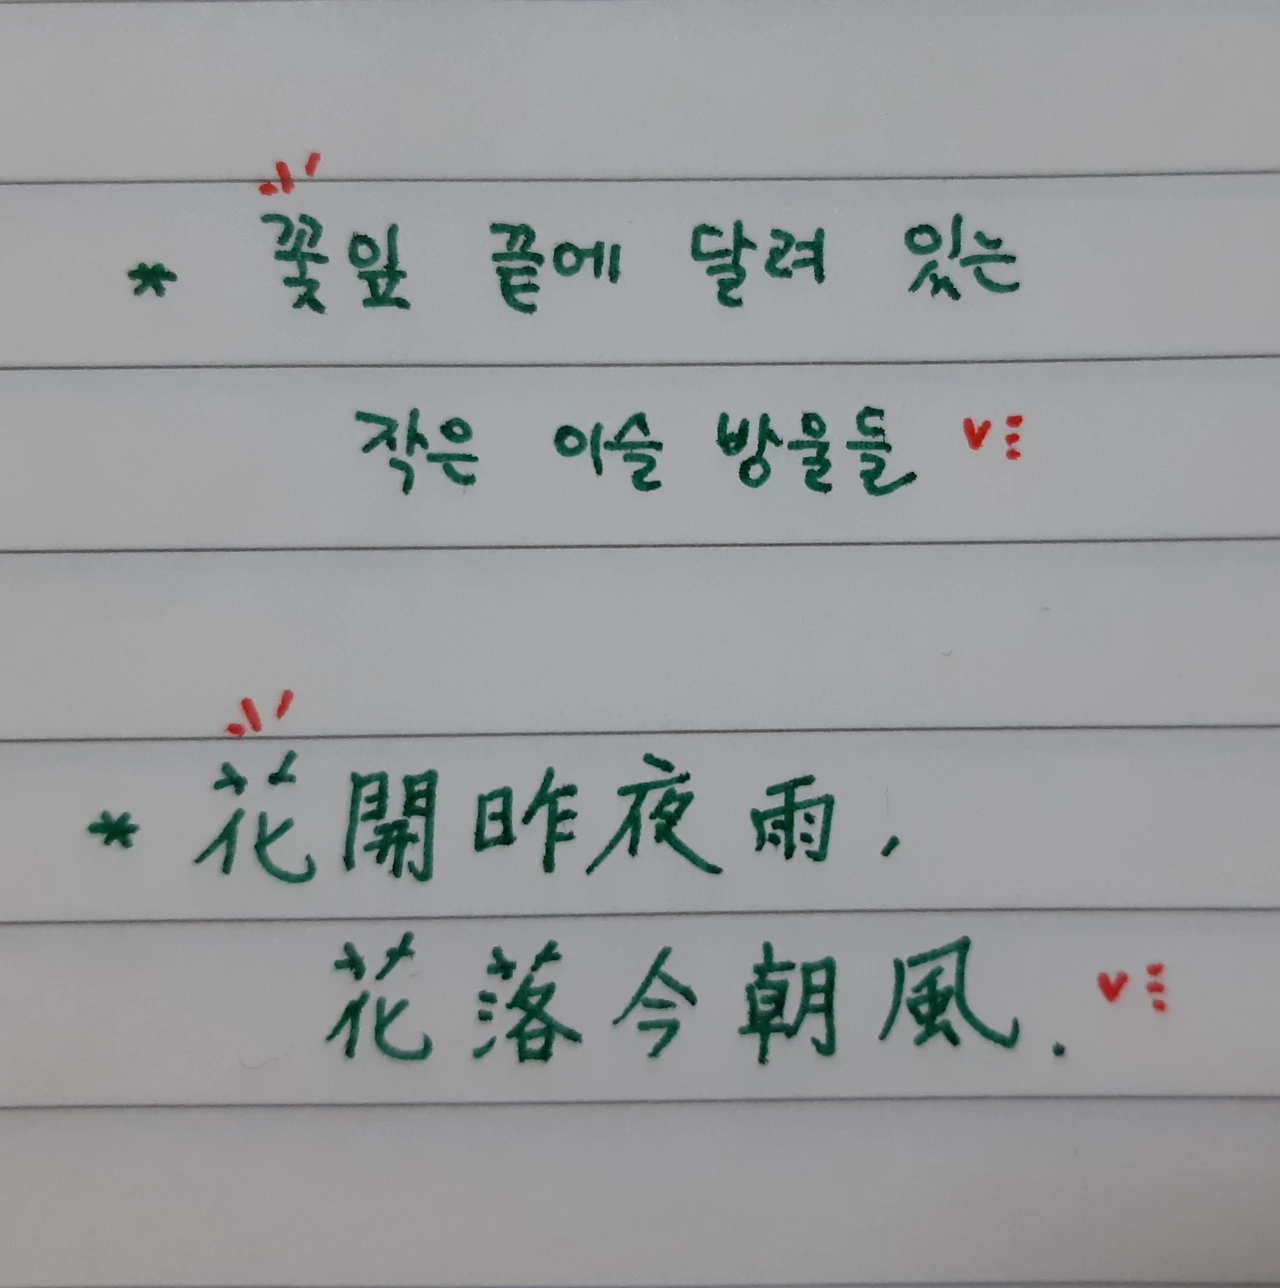 * 꽃잎 끝에 달려 있는
작은 이슬 방울들
* 花開昨夜雨,
花落今朝風.